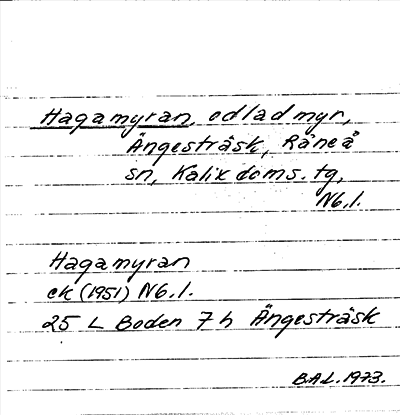 Hagamyran, odlad myr,
Ängesträsk, Råneå
sn, Kalix doms. tg,
Nb.l.
Hagamyran
ek (1951) Nb.l.
25 L Boden 7 h Ängesträsk
B.A.L. 1973.